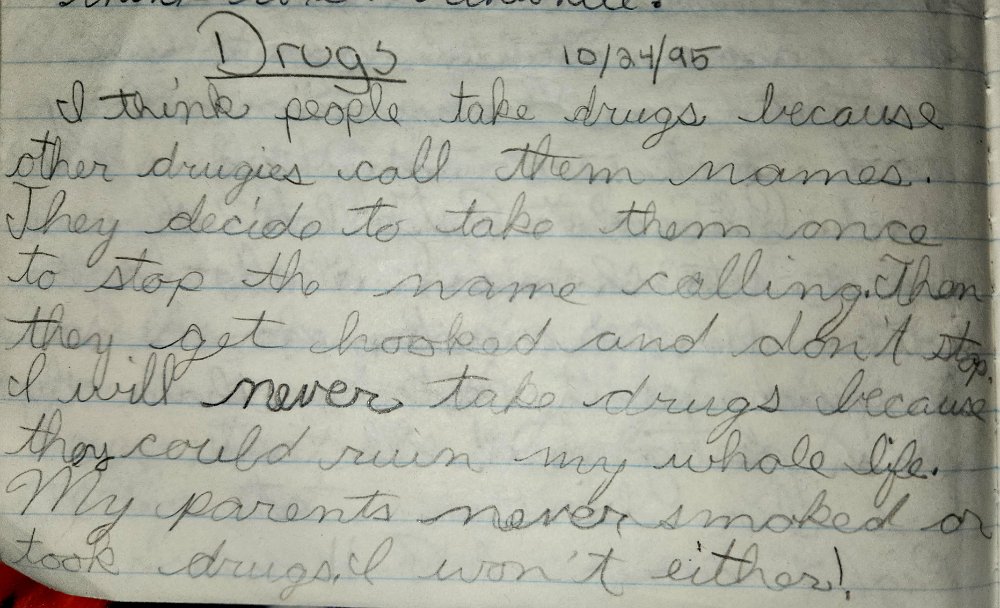 Drugs 10/24/95
I think people take drugs because
other drugies call them names.
They decide to take them once
to stop the name calling. Then
they get hooked and don't stop.
I will never take drugs because
they could ruin my whole life.
My parents never smoked or
took drugs. I won't either!